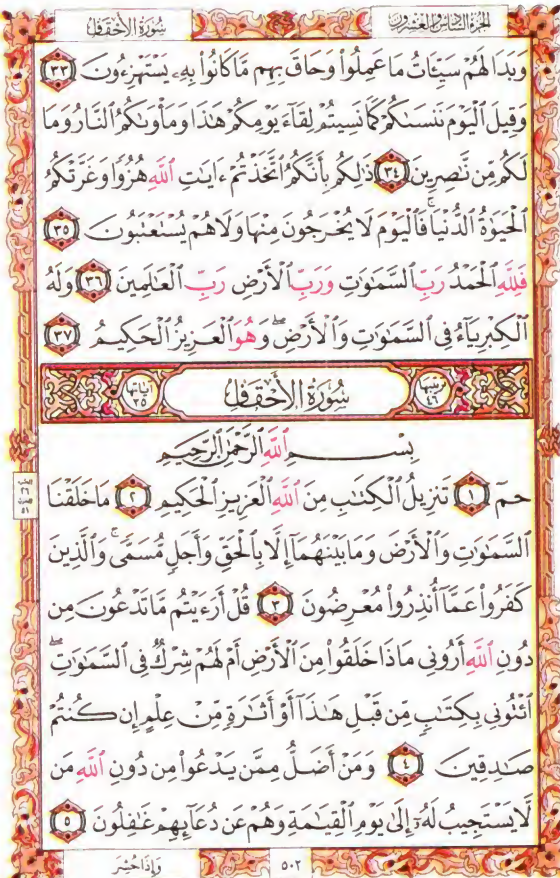 سُورَةُ الأَحْقَافِ
الجُزْءُ السَّادِسُ وَالعِشْرُونَ
وَبَدَا لَهُمْ سَيِّـَٔاتُ مَا عَمِلُوا۟ وَحَاقَ بِهِم مَّا كَانُوا۟ بِهِۦ يَسْتَهْزِءُونَ ٣٣
وَقِيلَ ٱلْيَوْمَ نَنسَىٰكُمْ كَمَا نَسِيتُمْ لِقَآءَ يَوْمِكُمْ هَٰذَا وَمَأْوَىٰكُمُ ٱلنَّارُ وَمَا
لَكُم مِّن نَّٰصِرِينَ ٣٤ ذَٰلِكُم بِأَنَّكُمُ ٱتَّخَذْتُمْ ءَايَٰتِ ٱللَّهِ هُزُوًا وَغَرَّتْكُمُ
ٱلْحَيَوٰةُ ٱلدُّنْيَا ۚ فَٱلْيَوْمَ لَا يُخْرَجُونَ مِنْهَا وَلَا هُمْ يُسْتَعْتَبُونَ ٣٥
فَلِلَّهِ ٱلْحَمْدُ رَبِّ ٱلسَّمَٰوَٰتِ وَرَبِّ ٱلْأَرْضِ رَبِّ ٱلْعَٰلَمِينَ ٣٦ وَلَهُ
ٱلْكِبْرِيَآءُ فِى ٱلسَّمَٰوَٰتِ وَٱلْأَرْضِ ۖ وَهُوَ ٱلْعَزِيزُ ٱلْحَكِيمُ ٣٧
ترتيبها ٤٦ سُورَةُ الأَحْقَافِ آياتها ٣٥
بِسْمِ ٱللَّهِ ٱلرَّحْمَٰنِ ٱلرَّحِيمِ
حمٓ ١ تَنزِيلُ ٱلْكِتَٰبِ مِنَ ٱللَّهِ ٱلْعَزِيزِ ٱلْحَكِيمِ ٢ مَا خَلَقْنَا
ٱلسَّمَٰوَٰتِ وَٱلْأَرْضَ وَمَا بَيْنَهُمَآ إِلَّا بِٱلْحَقِّ وَأَجَلٍ مُّسَمًّى ۚ وَٱلَّذِينَ
كَفَرُوا۟ عَمَّآ أُنذِرُوا۟ مُعْرِضُونَ ٣ قُلْ أَرَءَيْتُم مَّا تَدْعُونَ مِن
دُونِ ٱللَّهِ أَرُونِى مَاذَا خَلَقُوا۟ مِنَ ٱلْأَرْضِ أَمْ لَهُمْ شِرْكٌ فِى ٱلسَّمَٰوَٰتِ ۖ
ٱئْتُونِى بِكِتَٰبٍ مِّن قَبْلِ هَٰذَآ أَوْ أَثَٰرَةٍ مِّنْ عِلْمٍ إِن كُنتُمْ
صَٰدِقِينَ ٤ وَمَنْ أَضَلُّ مِمَّن يَدْعُوا۟ مِن دُونِ ٱللَّهِ مَن
لَّا يَسْتَجِيبُ لَهُۥٓ إِلَىٰ يَوْمِ ٱلْقِيَٰمَةِ وَهُمْ عَن دُعَآئِهِمْ غَٰفِلُونَ ٥
٥٠٢
وَإِذَا حُشِرَ